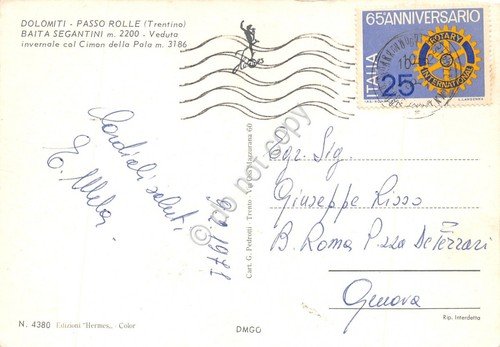 DOLOMITI - PASSO ROLLE (Trentino)
BAITA SEGANTINI m. 2200 - Veduta
invernale col Cimon della Pala m. 3186
65°ANNIVERSARIO
ROTARY
INTERNATIONAL
ITALIA
25
Cordiali saluti
9.2.1971
Cart. G. Pedrotti Trento
60
do not copy
Egr. Sig.
Giuseppe Risso
B. Roma P.zza De Ferrari
Genova
Rip. Interdetta
N. 4380 Edizioni "Hermes" - Color
DMGO